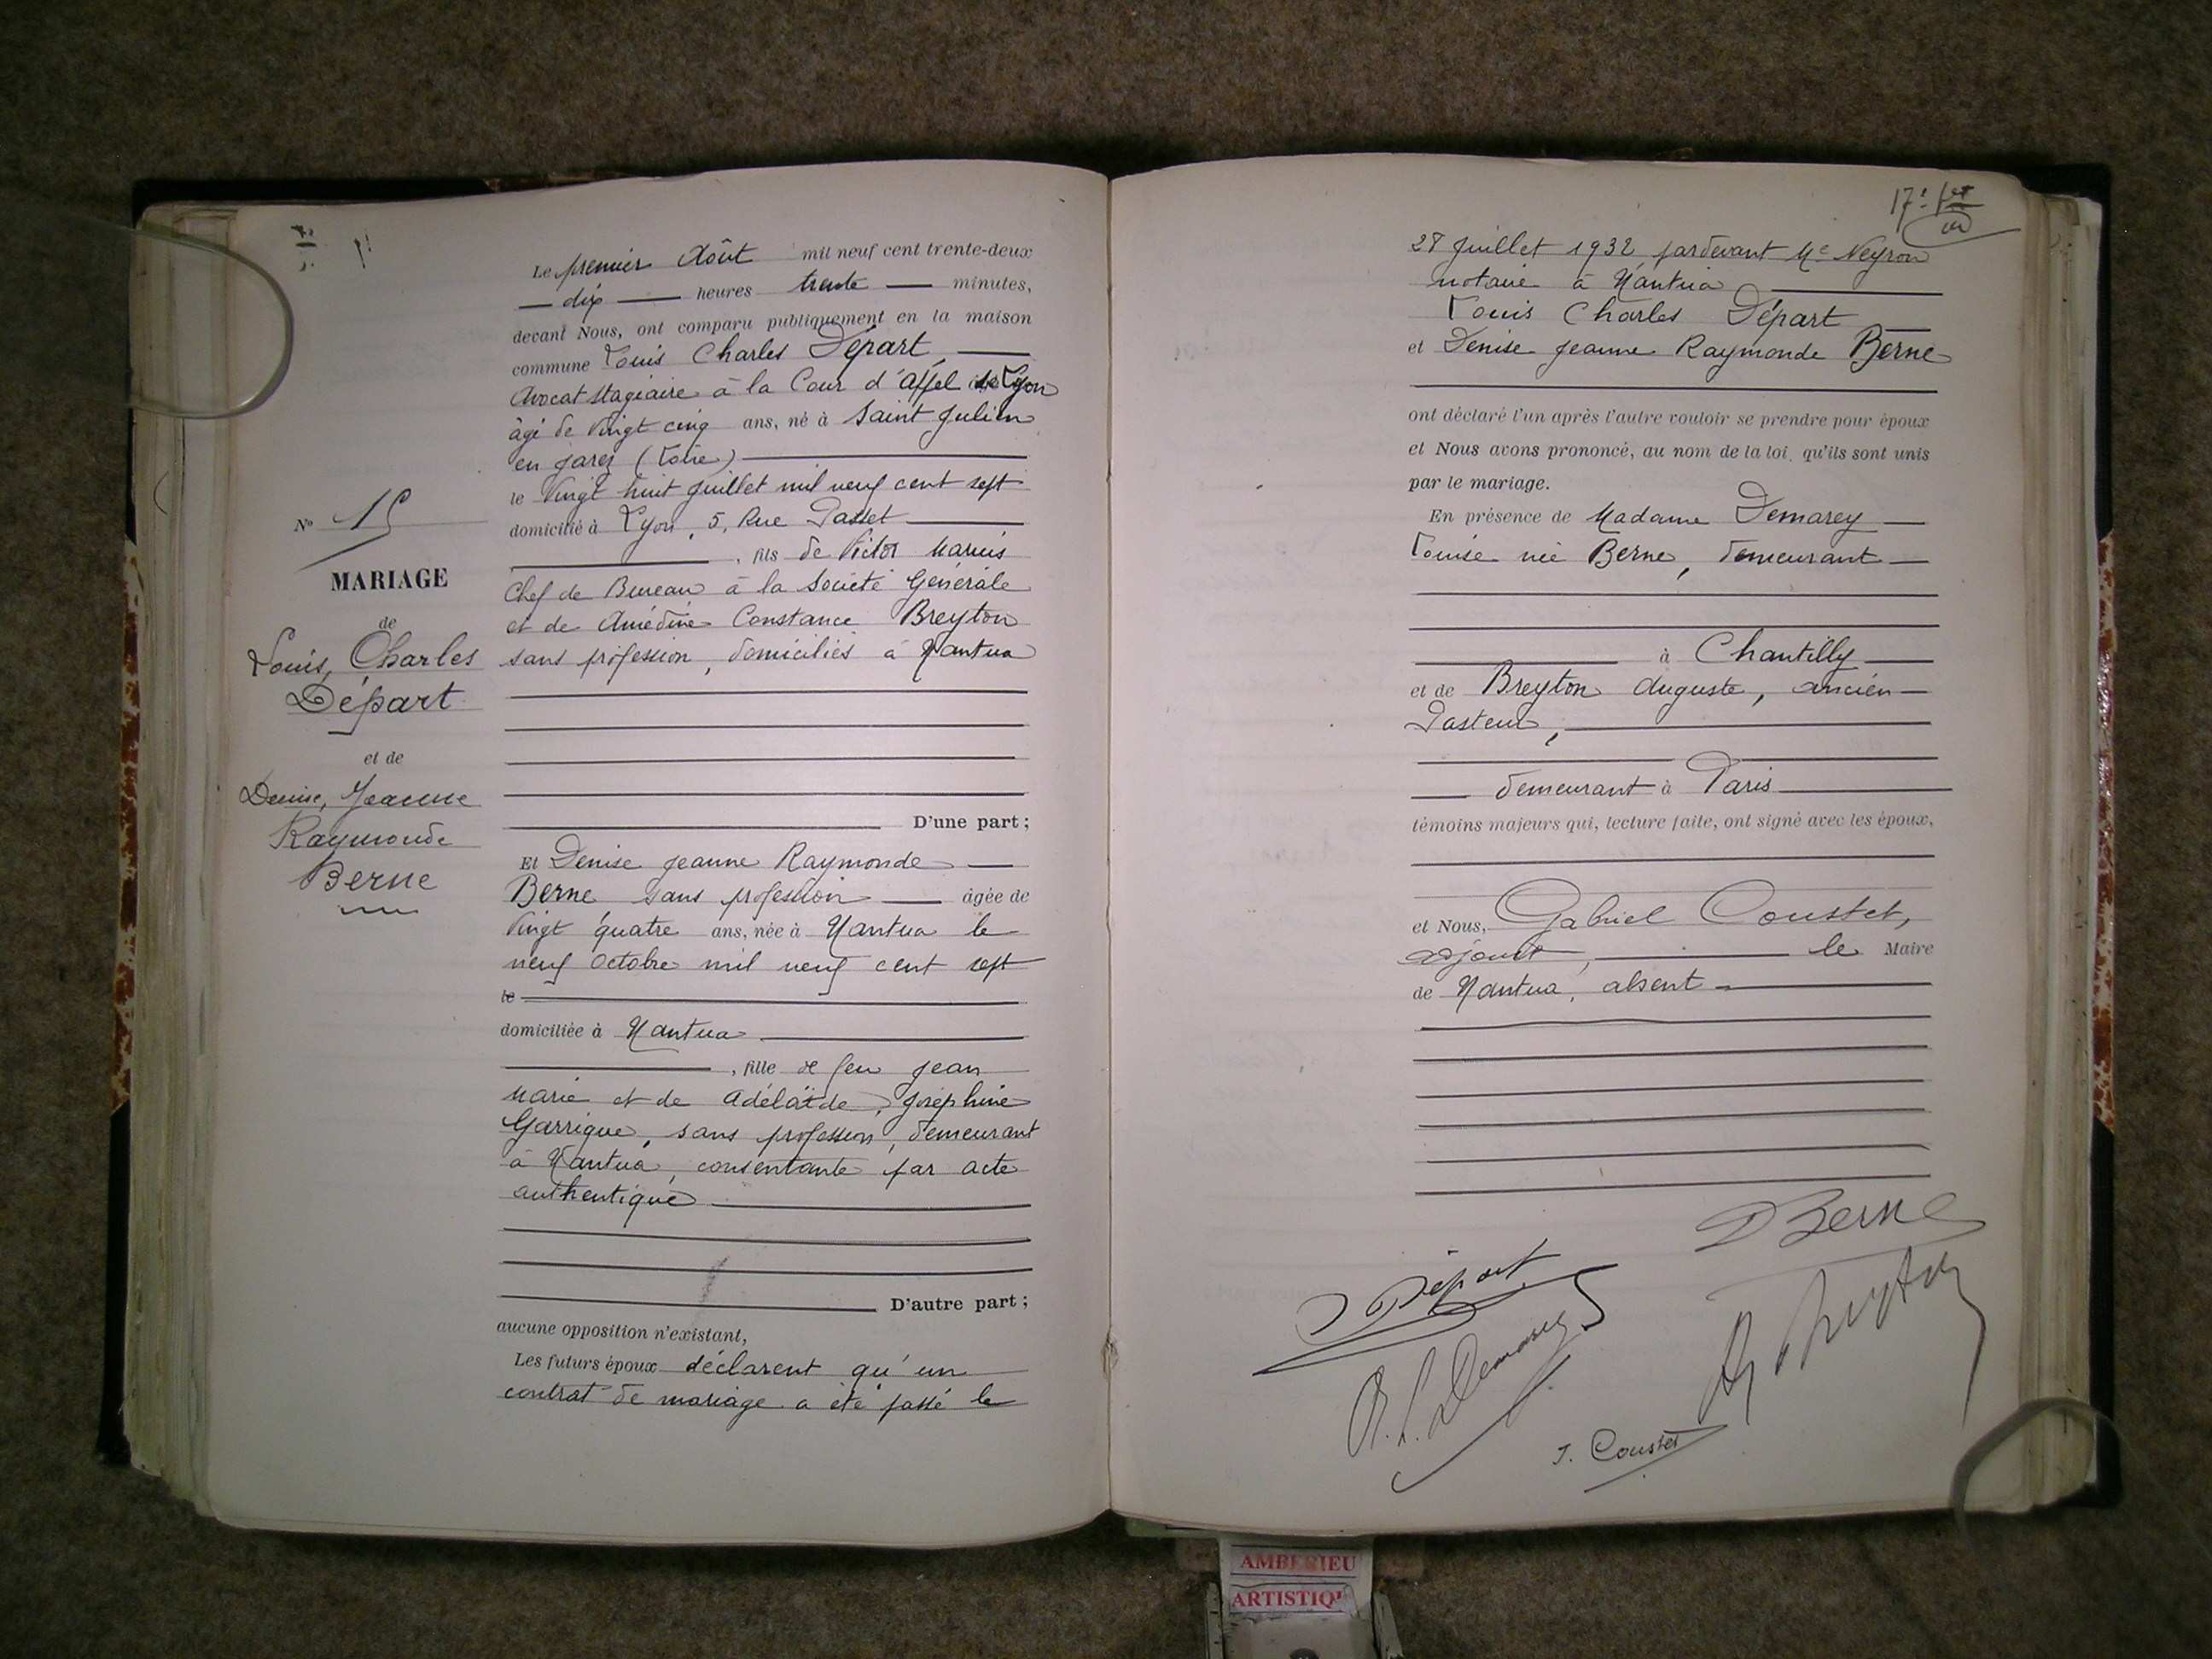 Le premier Août mil neuf cent trente-deux
dix heures trente minutes,
devant Nous, ont comparu publiquement en la maison
commune Louis Charles Départ,
Avocat stagiaire à la Cour d'Appel de Lyon
âgé de vingt cinq ans, né à Saint Julien
en Jarez (Loire)
le vingt huit juillet mil neuf cent sept
domicilié à Lyon, 5, Rue Passet
, fils de Victor Marius
Chef de Bureau à la Société Générale
et de Amédine Constance Breyton
sans profession, domiciliés à Nantua
D'une part ;
Et Denise Jeanne Raymonde
Berne sans profession âgée de
vingt quatre ans, née à Nantua le
neuf octobre mil neuf cent sept
le
domiciliée à Nantua
, fille de feu Jean
Marie et de Adélaïde, Joséphine
Garrigue, sans profession, demeurant
à Nantua, consentante par acte
authentique
D'autre part ;
aucune opposition n'existant,
Les futurs époux déclarent qu'un
contrat de mariage a été passé le
N° 15
MARIAGE
de
Louis, Charles
Départ
et de
Denise, Jeanne
Raymonde
Berne
28 Juillet 1932 pardevant Me Neyron
notaire à Nantua
Louis Charles Départ
et Denise Jeanne Raymonde Berne
ont déclaré l'un après l'autre vouloir se prendre pour époux
et Nous avons prononcé, au nom de la loi, qu'ils sont unis
par le mariage.
En présence de Madame Demarey
Louise née Berne, demeurant
à Chantilly
et de Breyton Auguste, ancien
Pasteur,
demeurant à Paris
témoins majeurs qui, lecture faite, ont signé avec les époux,
et Nous, Gabriel Coustet,
adjoint, le Maire
de Nantua, absent
D Berne
Départ
Breyton
Demarey
J. Coustet
AMBERIEU